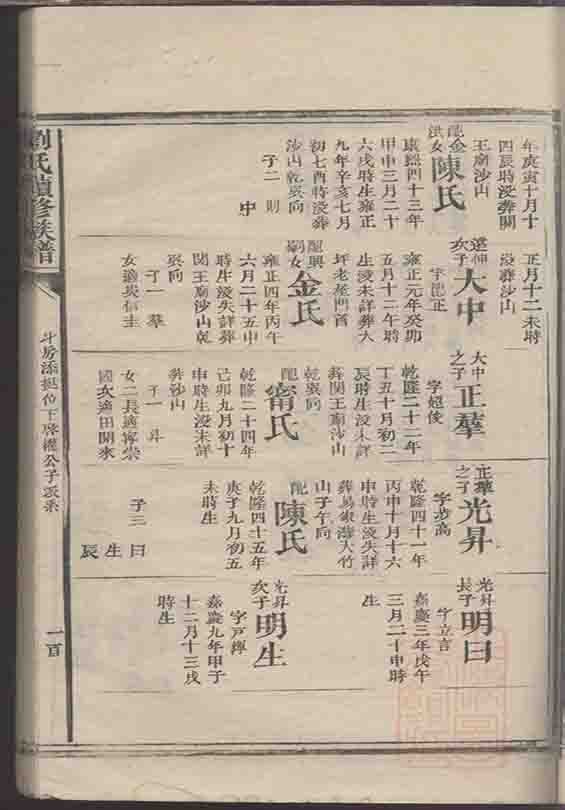 劉氏續修族譜
年庚寅十月十
四辰時沒葬關
王廟沙山
配金
洪女
陳氏
康熙四十三年
甲申三月二十
六戌時生雍正
九年辛亥七月
初七酉時沒葬
沙山乾巽向
子二 則
中
正月十二未時
沒葬沙山
次子
大中
字龍正
雍正元年癸卯
五月十二午時
生沒未詳葬大
坪老屋門首
配興
嗣女
金氏
雍正四年丙午
六月二十五申
時生沒失詳葬
關王廟沙山乾
巽向
子一 羣
女適吳信圭
大中
之子
正羣
字超俊
乾隆二十二年
丁丑十月初二
辰時生沒未詳
葬關王廟沙山
乾巽向
配
甯氏
乾隆二十四年
己卯九月初十
申時生沒未詳
葬沙山
子一 斗
女二長適甯榮
國次適田開來
正羣
之子
光昇
字步高
乾隆四十一年
丙申十月十六
申時生沒失詳
葬易家海大竹
山子午向
配
陳氏
乾隆四十五年
庚子九月初五
未時生
子三 曰
生
辰
光昇
長子
明曰
字立言
嘉慶三年戊午
三月二十申時
生
光昇
次子
明生
嘉慶九年甲子
十二月十三戌
時生
斗房添挺位下啓權公子派系
一百